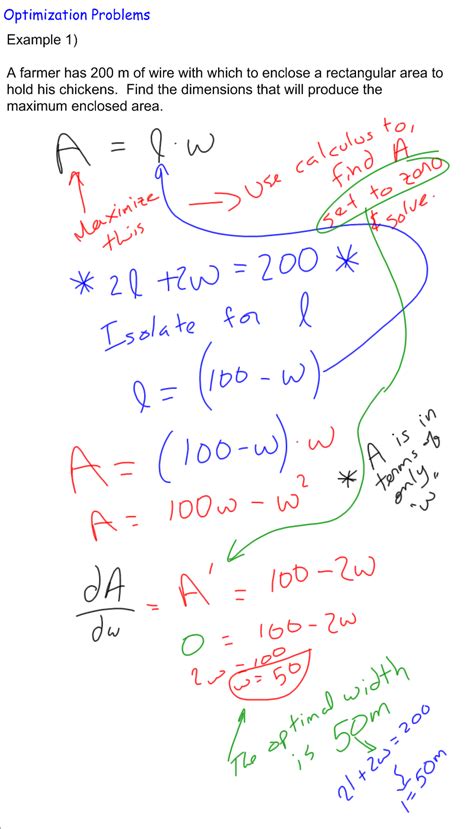 Optimization Problems
Example 1)
A farmer has 200 m of wire with which to enclose a rectangular area to
hold his chickens.  Find the dimensions that will produce the
maximum enclosed area.
A = l · w
Maximize
this
→ Use calculus to,
find A
set to zero
& solve.
* 2l + 2w = 200 *
Isolate for l
l = (100 - w)
A = (100-w) · w
A = 100w - w²
* A is in
terms of
only
"w"
dA/dw = A' = 100 - 2w
0 = 100 - 2w
2w = 100
w = 50
The optimal width
is 50m
2l + 2w = 200
l = 50m